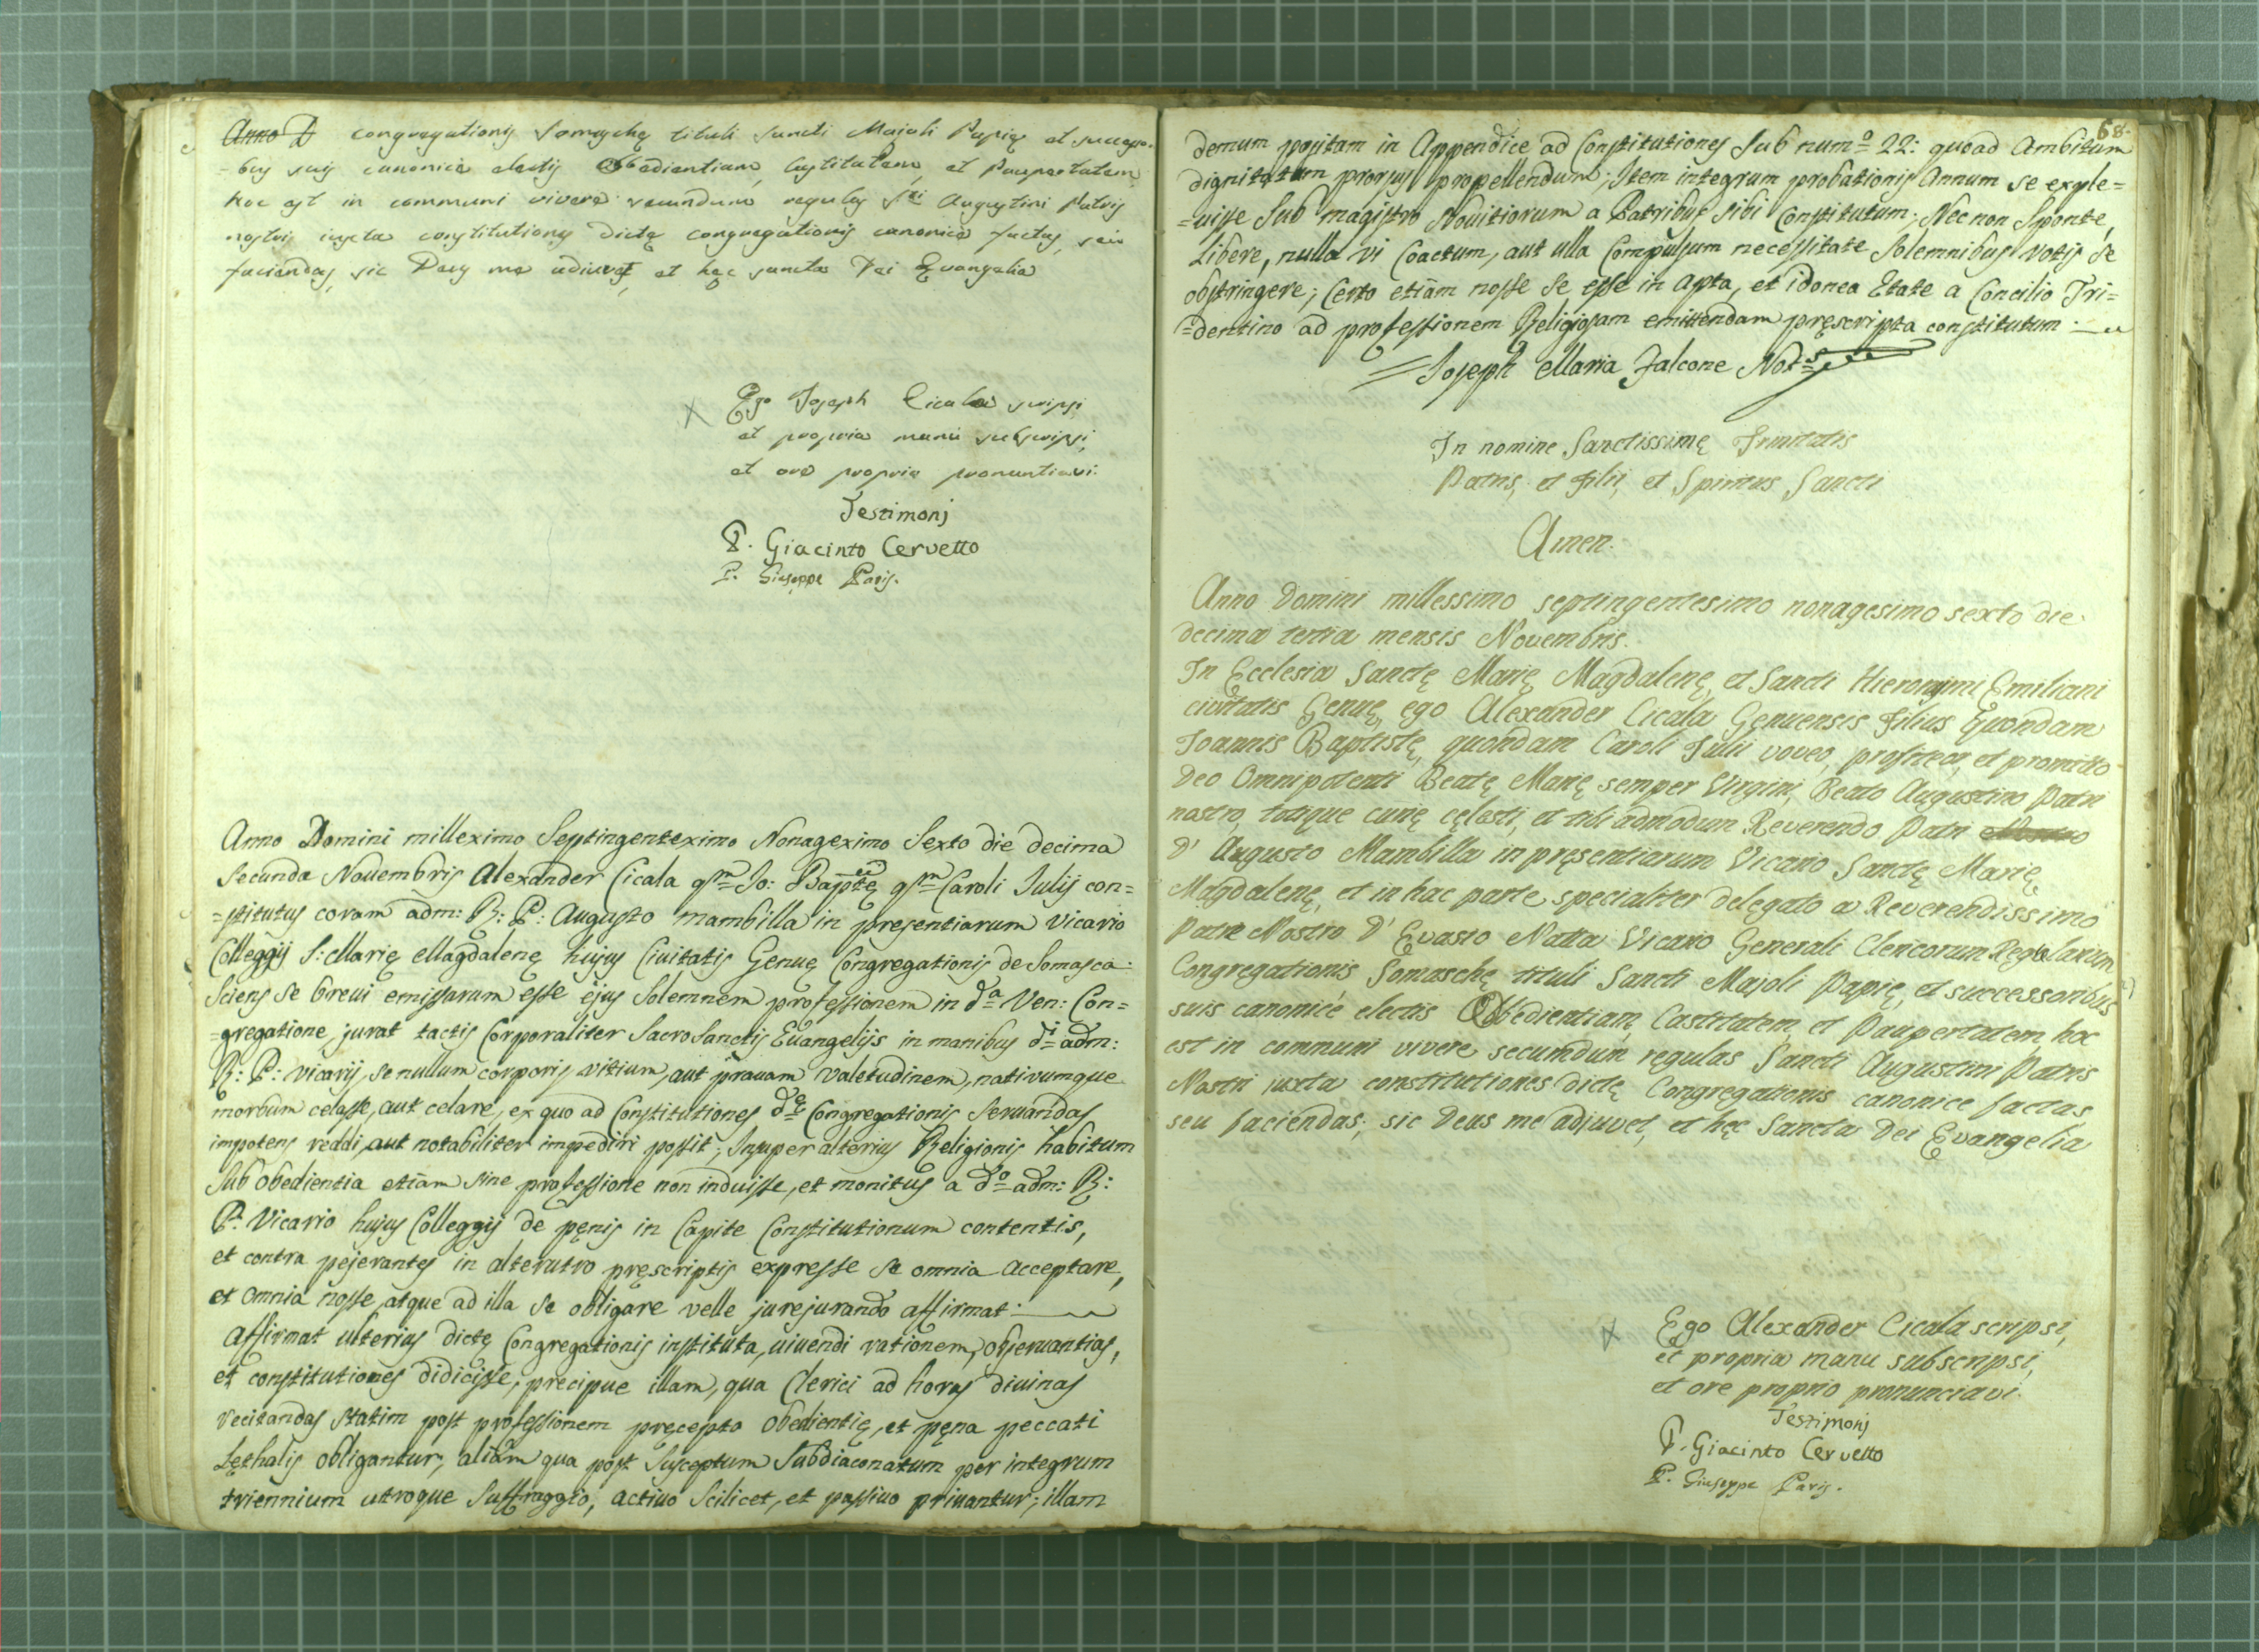 Anno D congregationis Somaschę tituli Sancti Maioli Papię et successo-
-bus suis canonicè electis Obbedientiam, Castitatem, et Paupertatem,
hoc est in communi vivere secundum regulas Sti Augustini Patris
nostri iuxta constitutiones dictę congregationis canonicè factas, seu
faciendas, sic Deus me adiuvet, et hęc sancta Dei Evangelia
Ego Joseph Cicala scripsi
et propria manu subscripsi,
et ore proprio pronuntiavi.
Testimonj
P. Giacinto Cervetto
P. Giuseppe Paris.
Anno Domini milleximo Septingenteximo Nonageximo Sexto die decima
Secunda Novembris Alexander Cicala qm Jo: Baptę qm Caroli Julij con=
=stitutus coram adm: R: P: Augusto mambilla in presentiarum Vicario
Colleggij S: Marię Magdalenę hujus Civitatis Genuę Congregationis de Somasca:
Sciens se brevi emissurum esse ejus Solemnem professionem in da Ven: Con=
=gregatione, jurat tactis Corporaliter SacroSanctis Evangelijs in manibus di adm:
R: P: vicarij, se nullum corporis vitium, aut pravam valetudinem, nativumque
morbum celasse, aut celare, ex quo ad Constitutiones dę Congregationis Servandas
impotens reddi, aut notabiliter impediri possit; Insuper alterius Religionis habitum
Sub obedientia etiam sine professione non induisse, et monitus a do adm: R:
P: Vicario hujus Colleggij de pęnis in Capite Constitutionum contentis,
et contra pejerantes in alterutro pręscriptis expresse se omnia acceptare,
et omnia nosse, atque ad illa se obligare velle jurejurando affirmat:
Affirmat ulterius dictę Congregationis instituta, vivendi rationem, observantias,
et constitutiones didicisse, precipue illam, qua Clerici ad horas divinas
recitandas statim post professionem pręcepto obedientię, et pęna peccati
Lęthalis obligantur, aliam qua post Susceptum Subdiaconatum per integrum
triennium utroque Suffraggio, activo Scilicet, et passivo privantur; illam
68.
demum positam in Appendice ad Constitutiones Sub numo 22: quoad Ambitum
dignitatum prorsus propellendum; Item integrum probationis Annum se exple=
=visse Sub magistro Novitiorum a Patribus sibi Constitutum; Nec non Sponte,
Libere, nulla vi Coactum, aut ulla Compulsum necessitate Solemnibus votis se
obstringere; Certo etiam nosse se esse in apta, et idonea Etate a Concilio Tri=
=dentino ad professionem Religiosam emittendam pręscripta constitutum.
Joseph Maria Falcone Nots
In nomine Sanctissimę Trinitatis
Patris, et Filii, et Spiritus Sancti
Amen.
Anno Domini millessimo septingentesimo nonagesimo sexto die
decima tertia mensis Novembris.
In Ecclesia Sanctę Marię Magdalenę, et Sancti Hieronymi Emiliani
civitatis Genuę, ego Alexander Cicala Genuensis Filius Quondam
Joannis Baptistę, quondam Caroli Julii voveo, profiteor, et promitto
Deo Omnipotenti Beatę Marię semper Virgini, Beato Augustino Patri
nostro, totique curię cęlesti, et tibi admodum Reverendo Patri Nostro
D' Augusto Mambilla in pręsentiarum Vicario Sanctę Marię
Magdalenę, et in hac parte specialiter delegato a Reverendissimo
Patre Nostro D' Evasio Natta Vicario Generali Clericorum Regolarum
Congregationis Somaschę tituli Sancti Majoli Papię, et successoribus
suis canonicè electis Obbedientiam, Castitatem, et Paupertatem, hoc
est in communi vivere secundum regulas Sancti Augustini Patris
Nostri juxta constitutiones dictę Congregationis canonice factas,
seu faciendas; sic Deus me adjuvet, et hęc Sancta Dei Evangelia
Ego Alexander Cicala scripsi,
et propria manu subscripsi,
et ore proprio pronunciavi.
Testimonj
P. Giacinto Cervetto
P. Giuseppe Paris.